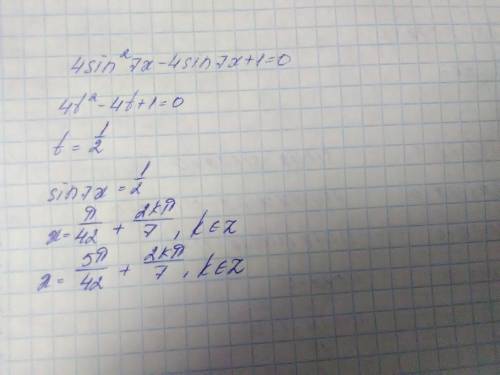 4sin²7x-4sin7x+1=0
4t²-4t+1=0
t=1/2
sin7x=1/2
x=π/42+2kπ/7, k∈Z
x=5π/42+2kπ/7, k∈Z